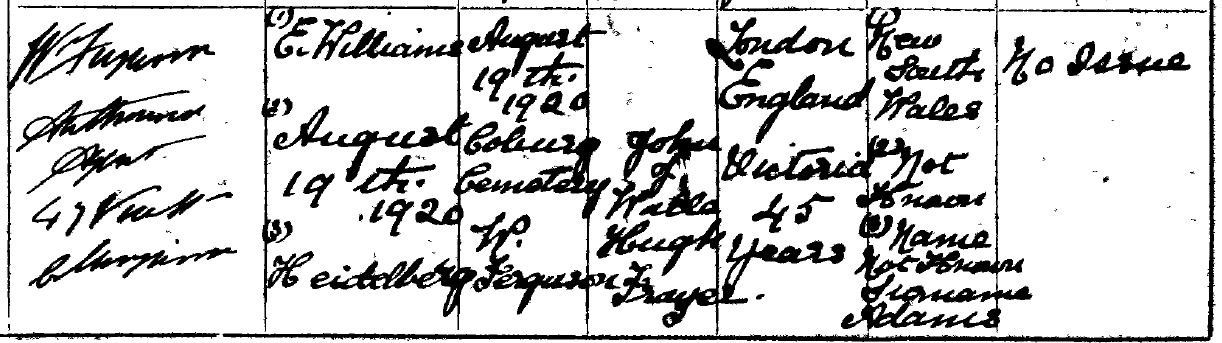 W Ferguson
Authorised
Agent
47
(1)
E. Williams
(2)
August
19th.
1920
(3)
Heidelberg
August
19th.
1920
Coburg
Cemetery
W.
Ferguson
John
Hugh
Frayer.
London
England
Victoria
45
years
(1)
New
South
Wales
(2) Not
Known
Name
Not Known
Surname
Adams
No Issue